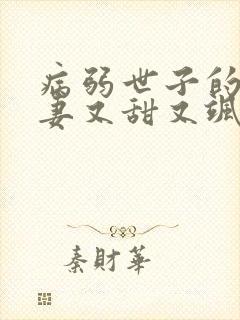 病弱世子的
妻又甜又飒
秦财华